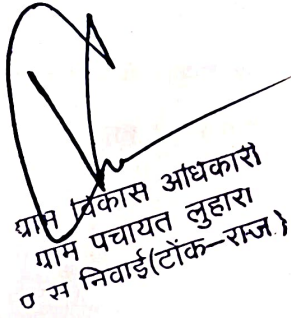 ग्राम विकास अधिकारी
ग्राम पचायत लुहारा
प स निवाई(टोंक-राज.)